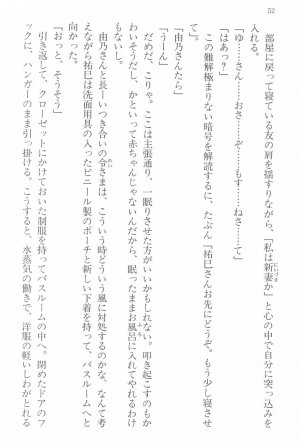 52
部屋に戻って寝ている友の肩を揺すりながら、「私は新妻か」と心の中で自分に突っ込みを
入れる。
「ゆ……さん……おさ……ぞ……もす……ねさ……て」
「はあっ?」
この難解極まりない暗号を解読するに、たぶん「祐巳さんお先にどうぞ。もう少し寝させ
て」
「由乃さんたら」
「うーん」
だめだ、こりゃ。ここは主張通り、一眠りさせた方がいいかもしれない。叩き起こすのもか
わいそうだし、かといって赤ちゃんじゃないんだから、眠ったままお風呂に入れてやれるわけ
もないし。
由乃さんと長ーいつき合いの令さまは、こういう時どういう風に対処するのかな、なんて考
えながら祐巳は洗面用具の入ったビニール製のポーチと新しい下着を持って、バスルームへと
向かった。
「おっと、そうそう」
引き返して、クローゼットにかけておいた制服を持ってバスルームの中へ。閉めたドアのフ
ックに、ハンガーのまま引っ掛ける。こうすると、水蒸気の働きで、洋服の軽いしわがとれる